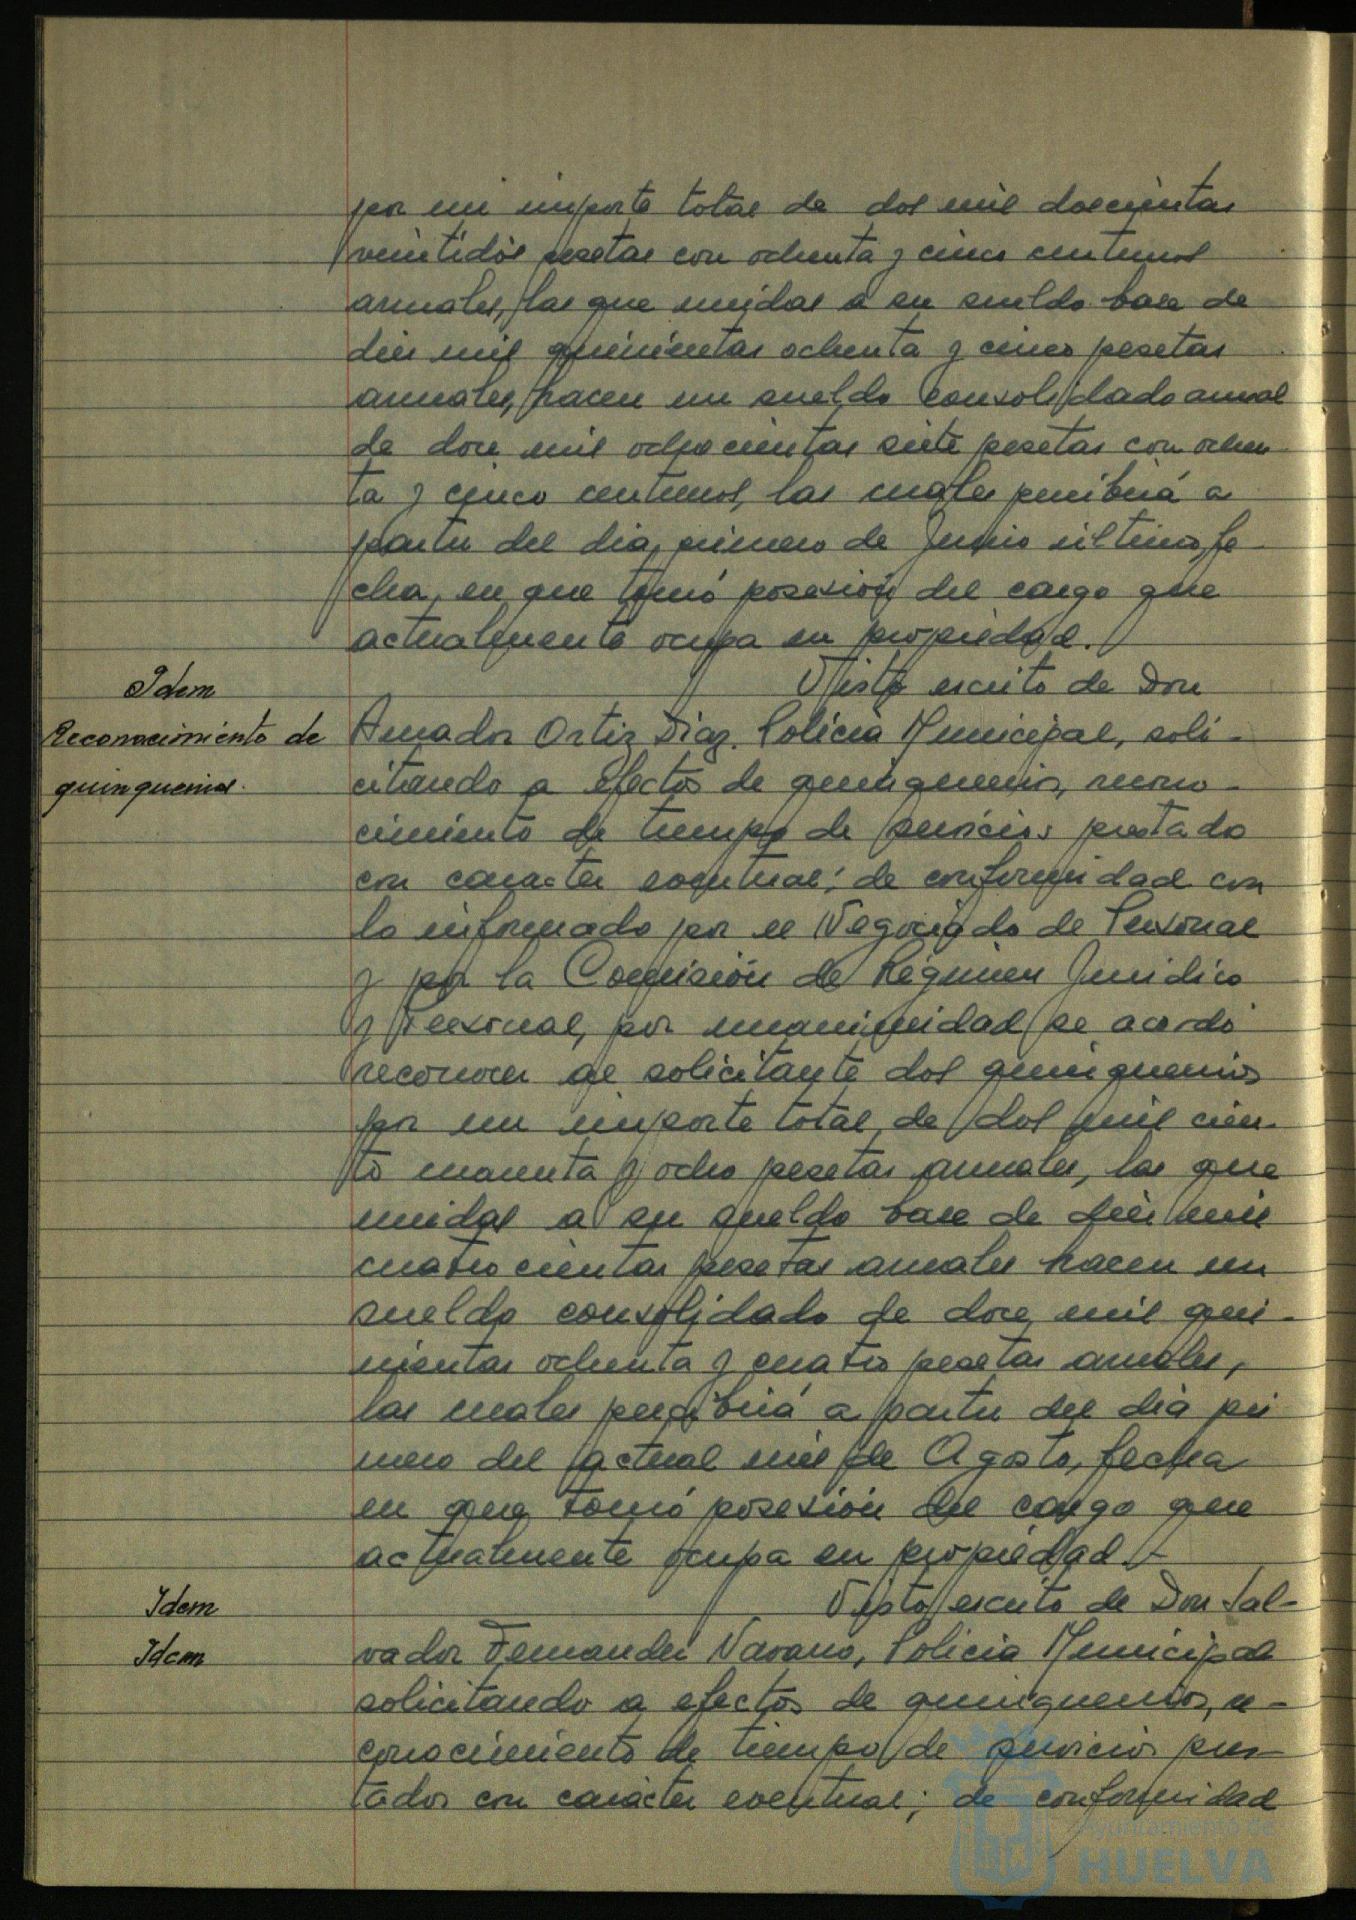 por un importe total de dos mil doscientas
veintidós pesetas con ochenta y cinco centimos
anuales, las que unidas a su sueldo base de
diez mil quinientas ochenta y cinco pesetas
anuales, hacen un sueldo consolidado anual
de doce mil ochocientas siete pesetas con ochen-
ta y cinco centimos, las cuales percibirá a
partir del dia primero de Junio ultimo, fe-
cha en que tomó posesión del cargo que
actualmente ocupa en propiedad.
Idem
Reconocimiento de
quinquenios.
Visto escrito de Don
Amador Ortiz Diaz. Policia Municipal, soli-
citando a efectos de quinquenios, recono-
cimiento de tiempo de servicios prestado
con caracter eventual; de conformidad con
lo informado por el Negociado de Personal
y por la Comisión de Régimen Juridico
y Personal, por unanimidad se acordó
reconocer al solicitante dos quinquenios
por un importe total de dos mil cien-
to ochenta y ocho pesetas anuales, las que
unidas a su sueldo base de diez mil
cuatrocientas pesetas anuales hacen un
sueldo consolidado de doce mil qui-
nientas ochenta y cuatro pesetas anuales,
las cuales percibirá a partir del dia pri
mero del actual mes de Agosto, fecha
en que tomó posesión del cargo que
actualmente ocupa en propiedad.-
Idem
Idem
Visto escrito de Don Sal-
vador Fernandez Navarro, Policia Municipal
solicitando a efectos de quinquenios, re-
conocimiento de tiempo de servicios pres-
tados con carácter eventual; de conformidad
Ayuntamiento de
HUELVA